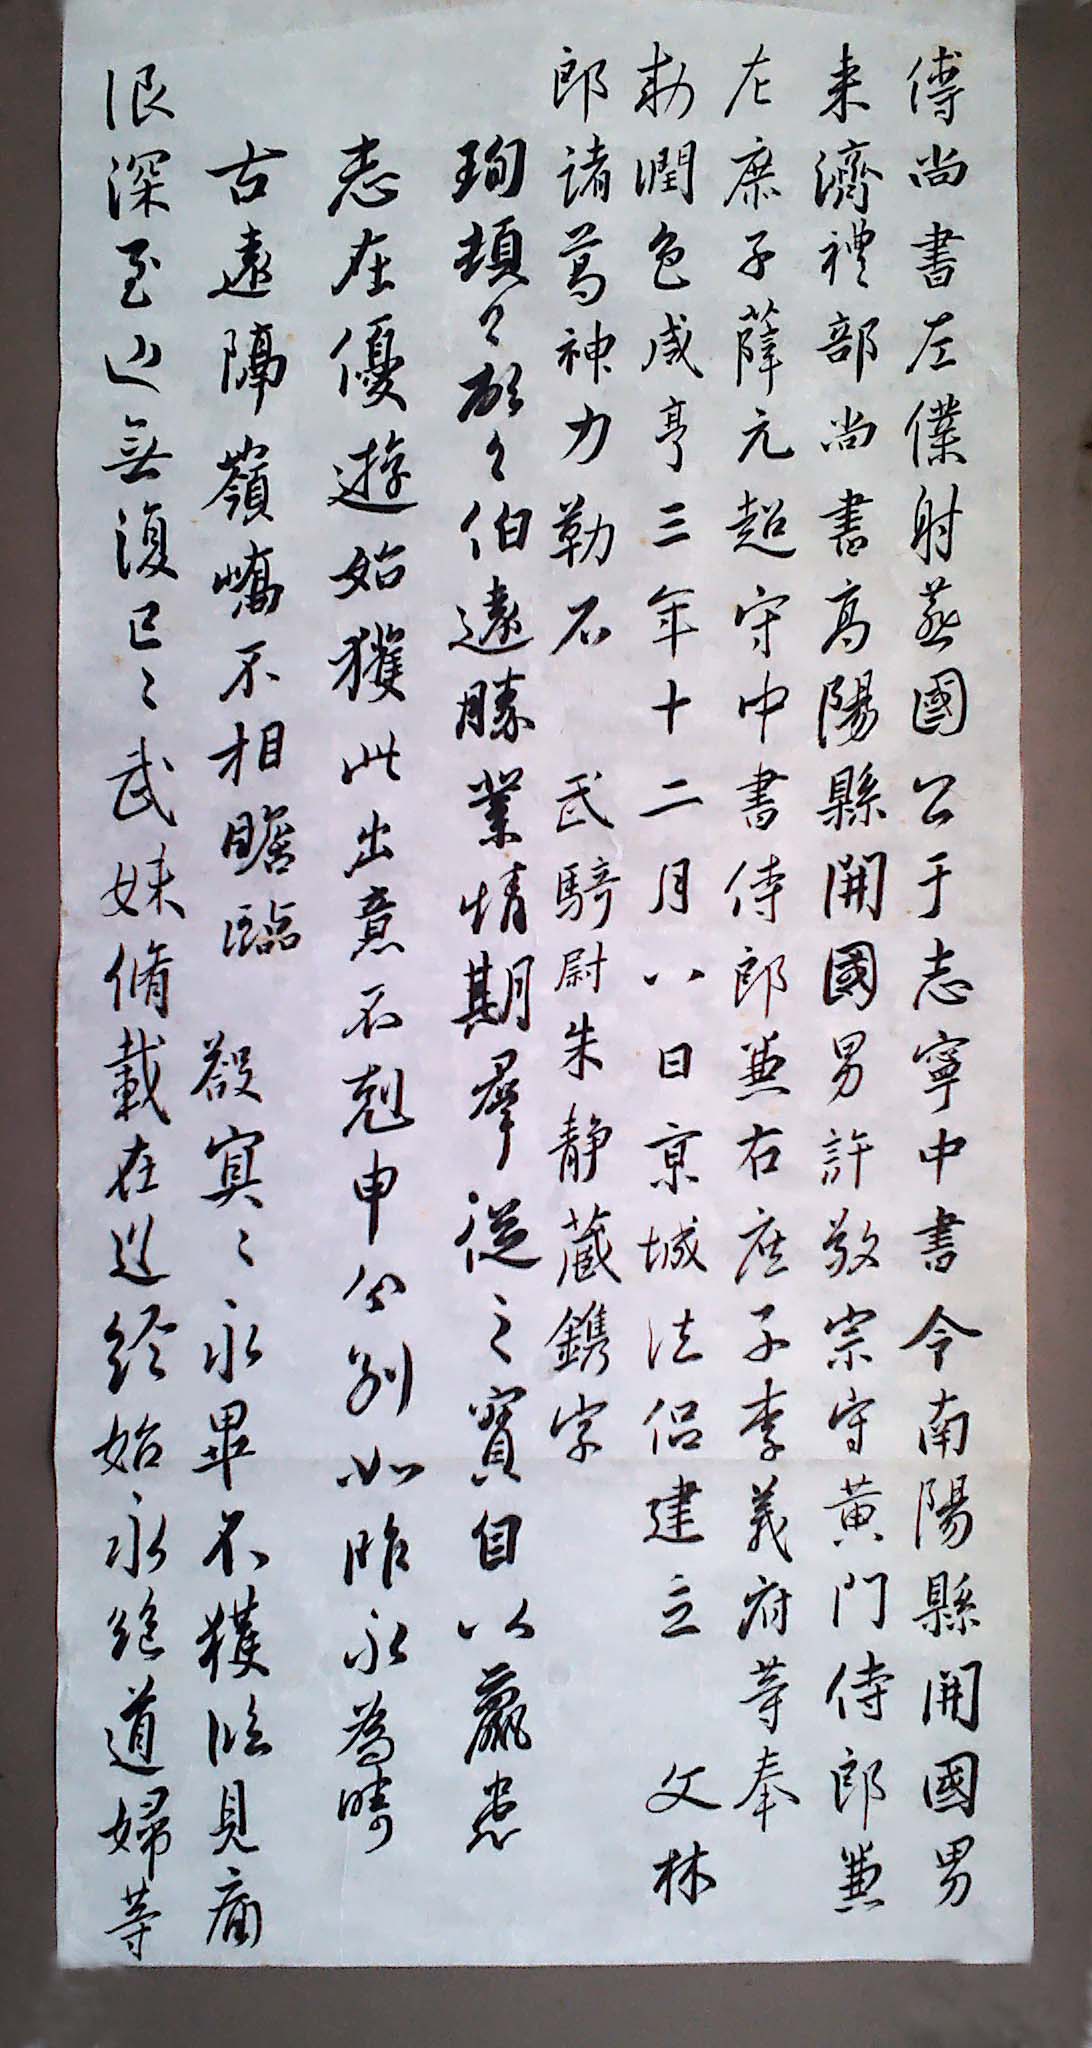 傅尚書左僕射燕國公于志寧中書令南陽縣開國男
来濟禮部尚書高陽縣開國男許敬宗守黃門侍郎兼
左庶子薛元超守中書侍郎兼右庶子李義府等奉
勅潤色咸亨三年十二月八日京城法侶建立 文林
郎諸葛神力勒石 武騎尉朱静藏鐫字
珣頓〻首〻伯遠勝業情期群從之寶自以羸患
志在優遊始獲此出意不剋申分別如昨永為疇
古遠隔嶺嶠不相瞻臨 〻永畢不獲臨見痛
恨深至也無復已〻武妹脩載在遠終始永絕道婦等